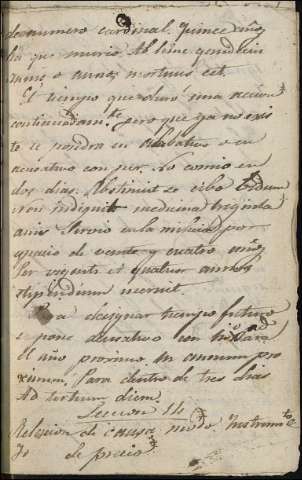 de numero cardinal. Quince años
ha que murio. Abhinc quindecim
annos o annis mortuus est.
El tiempo que duró una accion
continuadam.te pero que ya no exis
te se pondra en ablativo o en
acusativo con per. No comio en
dos dias. Abstinuit se cibo biduum
Non indiguit medicina triginta
annis. Sirvio en la milicia por
espacio de veinte y cuatro años
Per viginti et quatuor annos
stipendium meruit.
Para designar tiempo futuro
se pone acusativo con in o ad. Para
el año proximo. In annum pro
ximum. Para dentro de tres dias
Ad tertium diem.
Seccion 14
Relacion de causa modo Instrum.to
y de precio